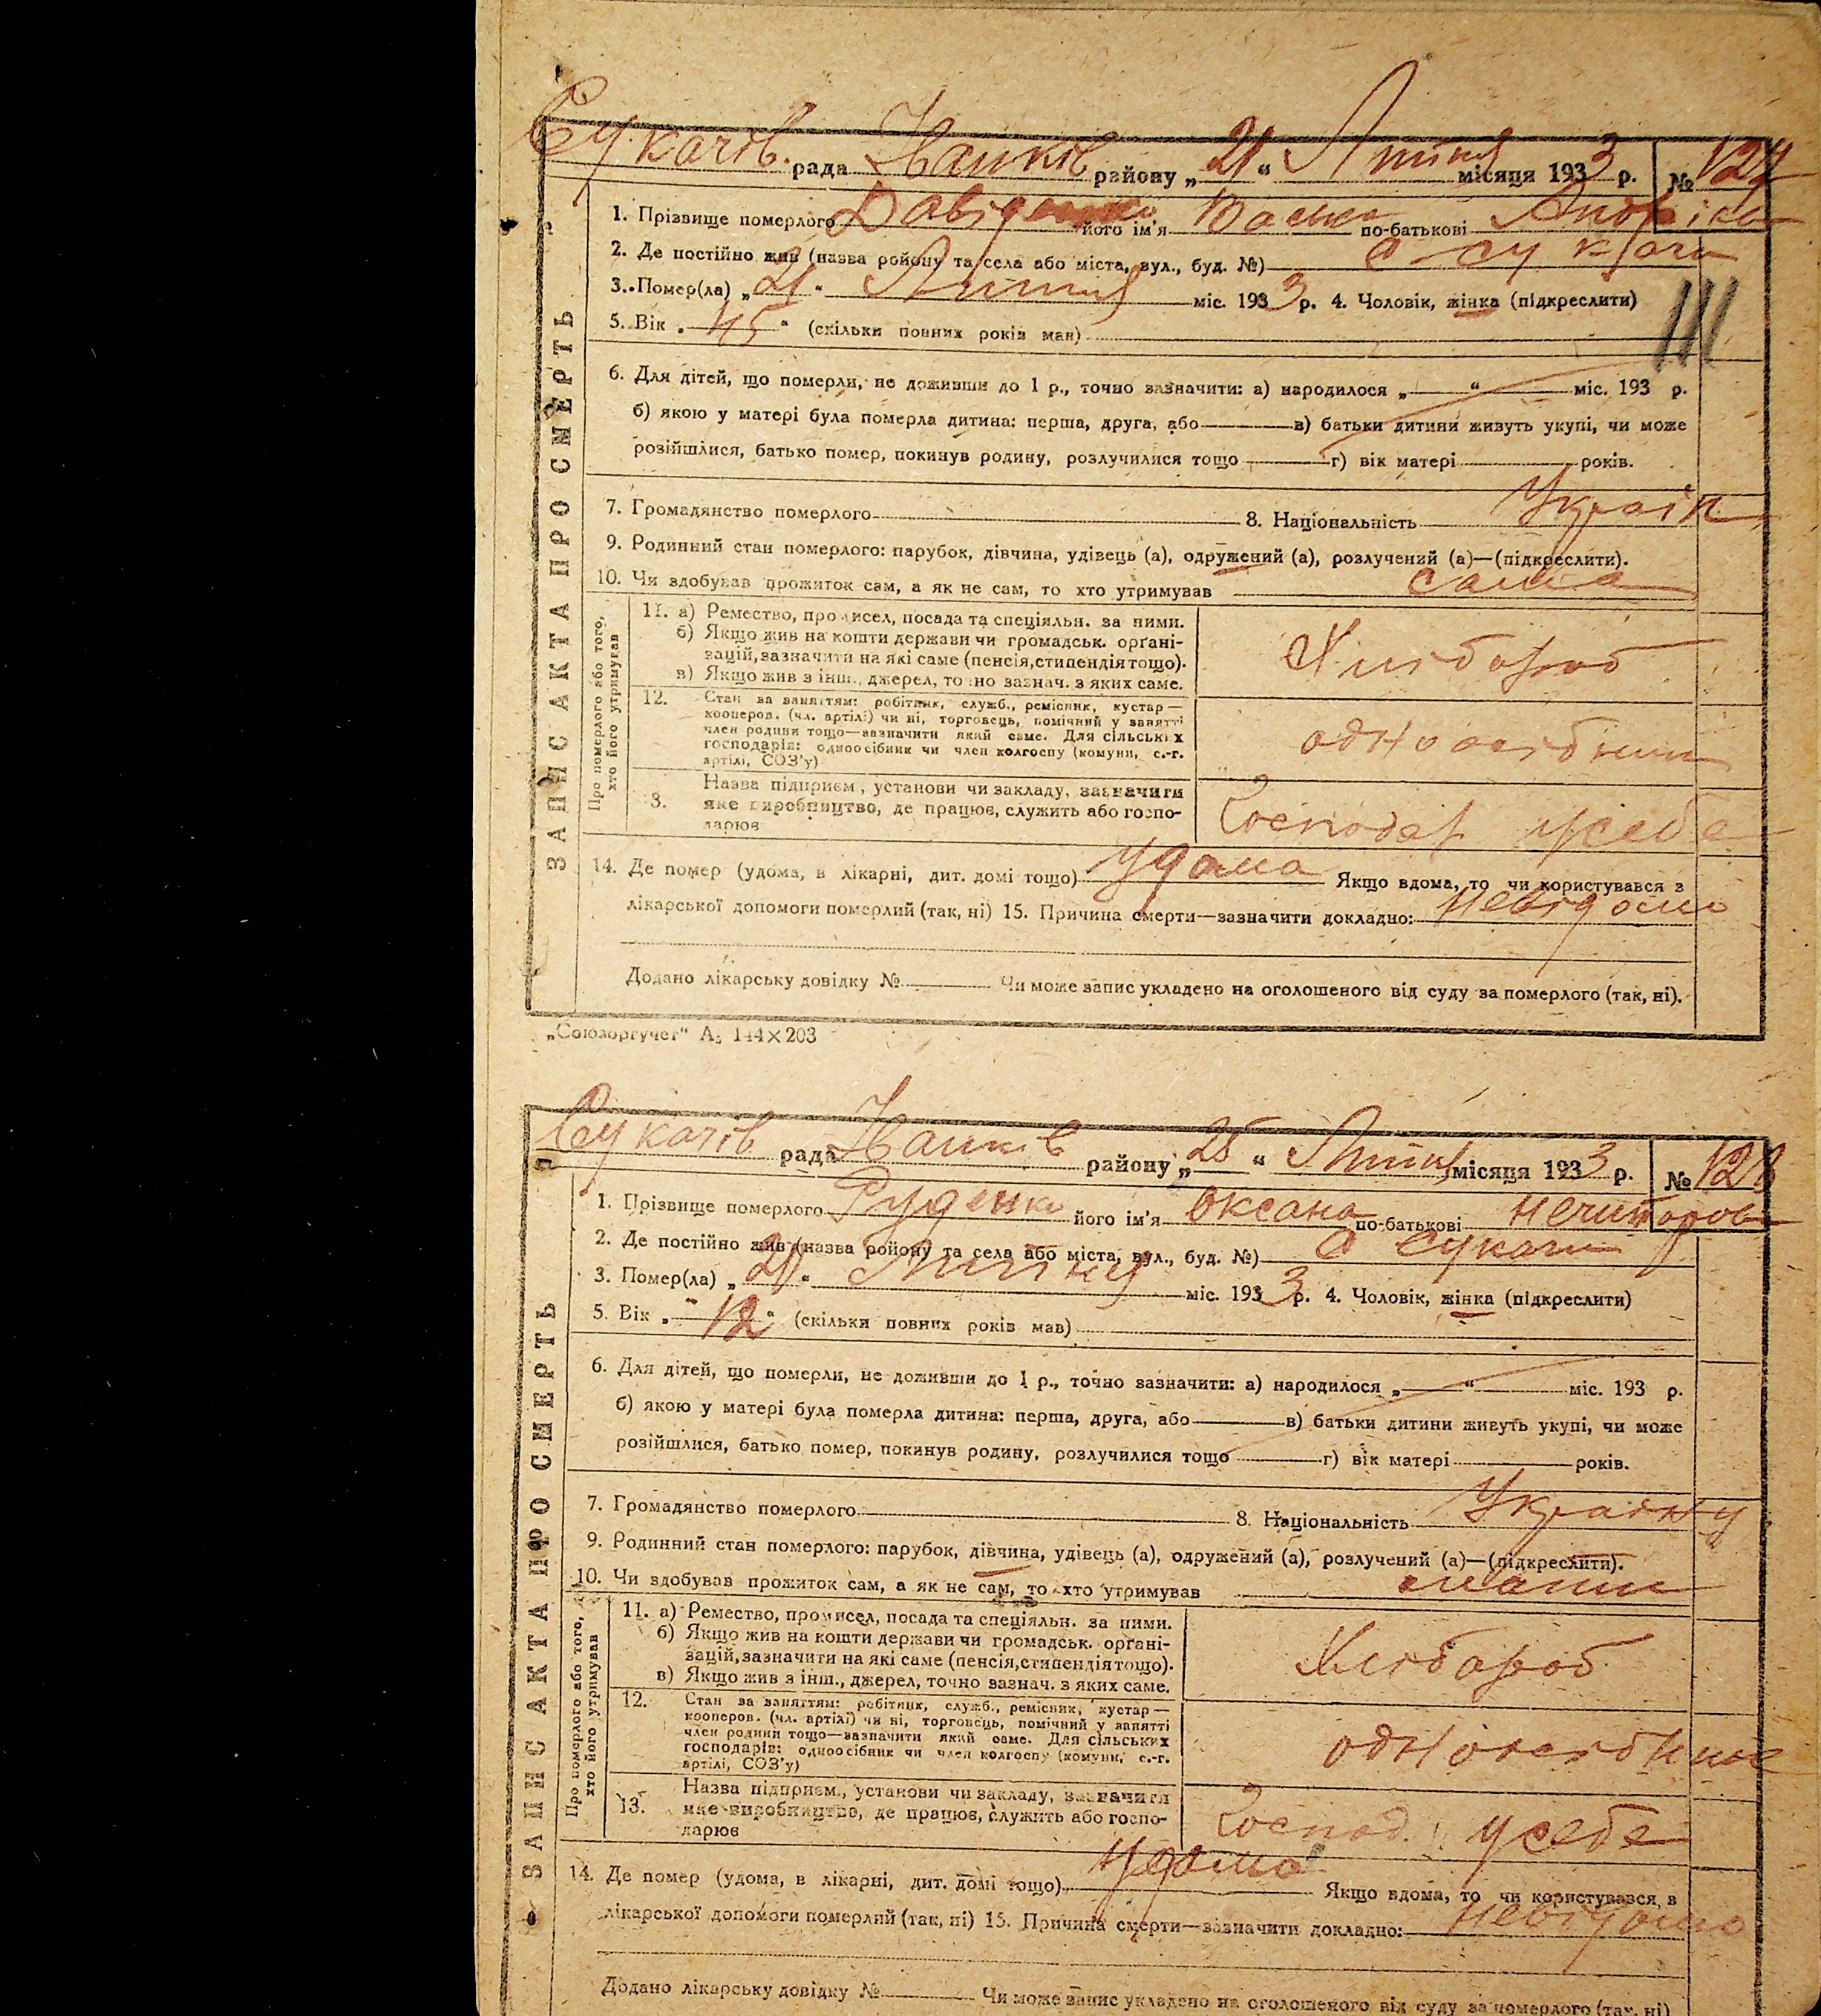 Сукачів. рада Іванків району „21“ Липня місяця 1933 р. № 127
1. Прізвище померлого Давіденко його ім'я по-батькові
2. Де постійно жив (назва ройону та села або міста, вул., буд. №) с Сукачи
3. Помер(ла) „21“ Липня міс. 1933 р. 4. Чоловік, жінка (підкреслити)
5. Вік „45“ (скільки повних років мав)
6. Для дітей, що померли, не доживши до 1 р., точно зазначити: а) народилося „ “ міс. 193 р.
б) якою у матері була померла дитина: перша, друга, або в) батьки дитини живуть укупі, чи може
розійшлися, батько помер, покинув родину, розлучилися тощо г) вік матері років.
7. Громадянство померлого 8. Національність Україн
9. Родинний стан померлого: парубок, дівчина, удівець (а), одружений (а), розлучений (а)—(підкреслити).
10. Чи здобував прожиток сам, а як не сам, то хто утримував сама
ЗАПИС АКТА ПРО СМЕРТЬ
Про померлого або того,
хто його утримував
11. а) Ремество, промисел, посада та спеціяльн. за ними.
б) Якщо жив на кошти держави чи громадськ. орґані-
зацій, зазначити на які саме (пенсія, стипендія тощо).
в) Якщо жив з інш., джерел, точно зазнач. з яких саме.
Хлібороб
12. Стан за заняттям: робітник, служб., ремісник, кустар—
кооперов. (чл. артілі) чи ні, торговець, помічний у занятті
член родини тощо—зазначити який саме. Для сільських
господарів: одноосібник чи член колгоспу (комуни, с.-г.
артілі, СОЗ'у)
одноосібник
3. Назва підприєм, установи чи закладу, зазначити
яке виробництво, де працює, служить або госпо-
дарює
Господар усебе
14. Де помер (удома, в лікарні, дит. домі тощо) удома Якщо вдома, то чи користувався з
лікарської допомоги померлий (так, ні) 15. Причина смерти—зазначити докладно: невідомо
Додано лікарську довідку № Чи може запис укладено на оголошеного від суду за померлого (так, ні).
„Союзоргучет“ А5 144×203
Сукачів рада Іванків району „25“ Липня місяця 1933 р. № 128
1. Прізвище померлого Руденко його ім'я Оксана по-батькові Нечипорові
2. Де постійно жив (назва ройону та села або міста, вул., буд. №) с Сукачи
3. Помер(ла) Липня міс. 1933 р. 4. Чоловік, жінка (підкреслити)
5. Вік „12“ (скільки повних років мав)
6. Для дітей, що померли, не доживши до 1 р., точно зазначити: а) народилося „ “ міс. 193 р.
б) якою у матері була померла дитина: перша, друга, або в) батьки дитини живуть укупі, чи може
розійшлися, батько помер, покинув родину, розлучилися тощо г) вік матері років.
7. Громадянство померлого 8. Національність
9. Родинний стан померлого: парубок, дівчина, удівець (а), одружений (а), розлучений (а)—(підкреслити).
10. Чи здобував прожиток сам, а як не сам, то хто утримував
ЗАПИС АКТА ПРО СМЕРТЬ
Про померлого або того,
хто його утримував
11. а) Ремество, промисел, посада та спеціяльн. за ними.
б) Якщо жив на кошти держави чи громадськ. орґані-
зацій, зазначити на які саме (пенсія, стипендія тощо).
в) Якщо жив з інш., джерел, точно зазнач. з яких саме.
Хлібороб
12. Стан за заняттям: робітник, служб., ремісник, кустар—
кооперов. (чл. артілі) чи ні, торговець, помічний у занятті
член родини тощо—зазначити який саме. Для сільських
господарів: одноосібник чи член колгоспу (комуни, с.-г.
артілі, СОЗ'у)
одноосібник
13. Назва підприєм., установи чи закладу, зазначити
яке виробництво, де працює, служить або госпо-
дарює
Господ. усебе
14. Де помер (удома, в лікарні, дит. домі тощо) удома Якщо вдома, то чи користувався в
лікарської допомоги померлий (так, ні) 15. Причина смерти—зазначити докладно: невідомо
Додано лікарську довідку № Чи може запис укладено на оголошеного від суду за померлого (так, ні)